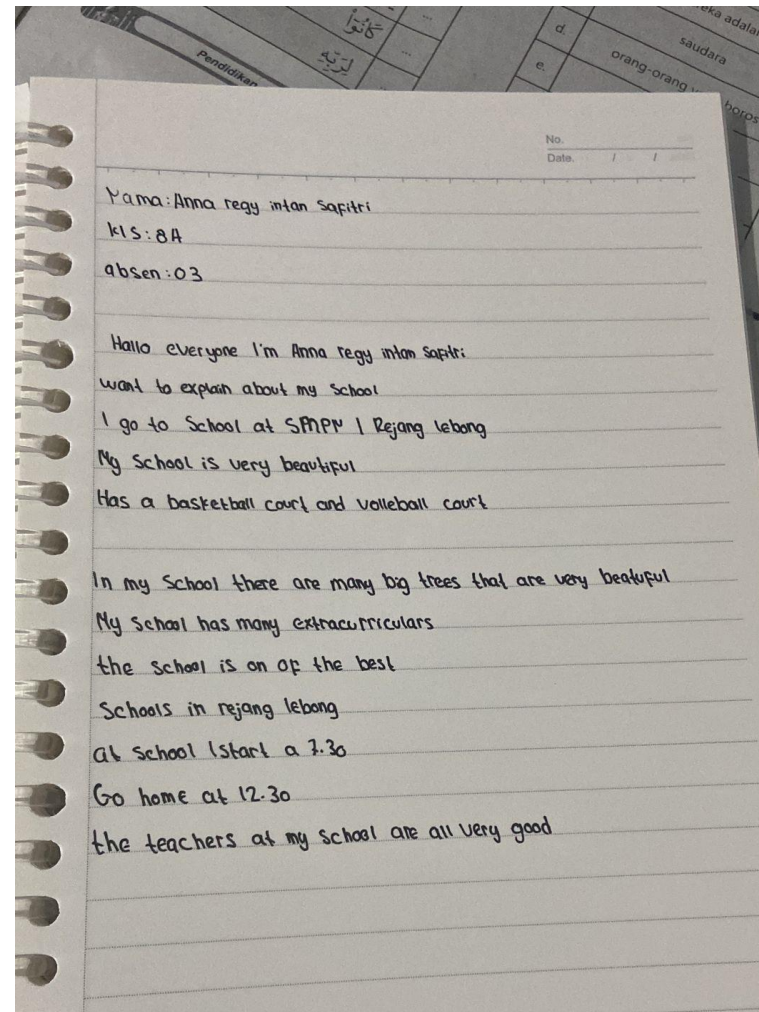 eka adalah
d.
saudara
e.
orang-orang
boros
كَانُوٓا۟
لِرَبِّهِۦ
...
...
Pendidikan
No.
Date. / /
Nama: Anna regy intan Safitri
kls: 8A
absen: 03
Hallo everyone I'm Anna regy intan Safitri
want to explain about my School
I go to School at SMPN 1 Rejang lebong
My School is very beautiful
Has a basketball court and volleball court
In my School there are many big trees that are very beatuful
My School has many extracurriculars
the school is on of the best
Schools in rejang lebong
at school I start a 7.30
Go home at 12.30
the teachers at my school are all very good